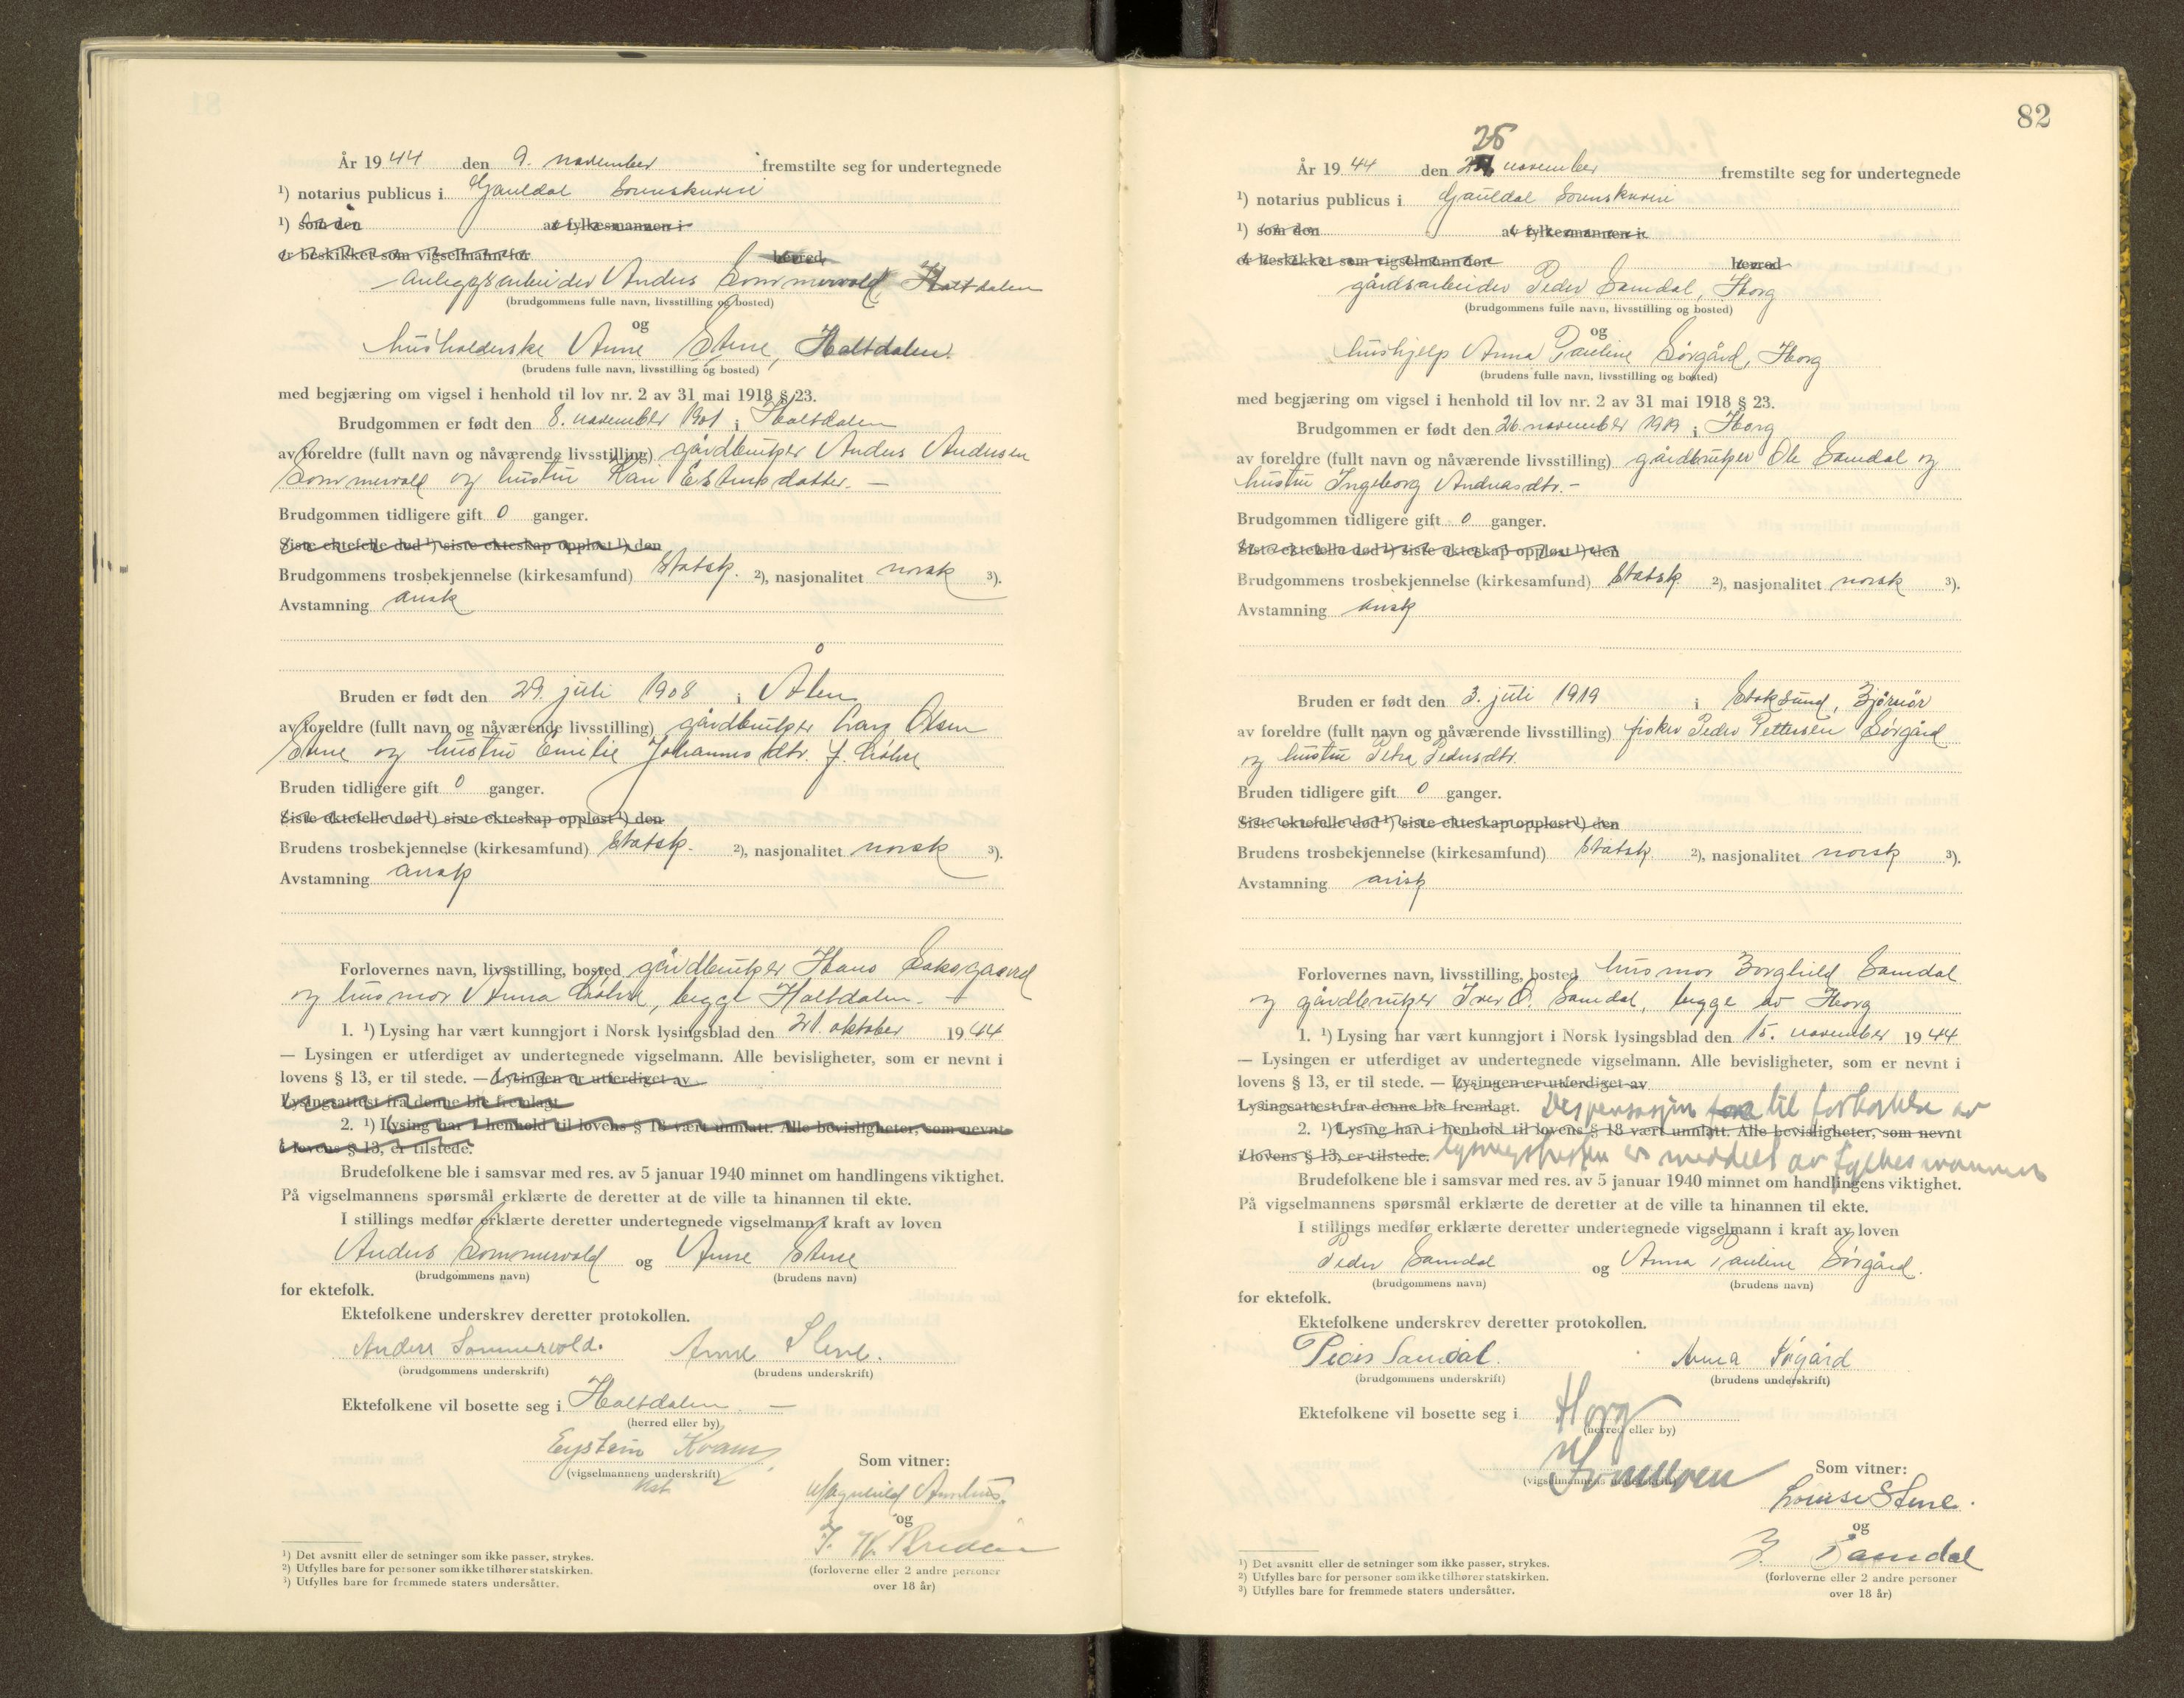 År 1944 den 9. november fremstilte seg for undertegnede
¹) notarius publicus i Gauldal Sorenskriveri
¹) som den av fylkesmannen i
er beskikket som vigselmann for herred
anleggsarbeider Anders Sommervold Haltdalen
(brudgommens fulle navn, livsstilling og bosted)
og
husholderske Anne Stene, Haltdalen.
(brudens fulle navn, livsstilling og bosted)
med begjæring om vigsel i henhold til lov nr. 2 av 31 mai 1918 § 23.
Brudgommen er født den 8. november 1901 i Haltdalen
av foreldre (fullt navn og nåværende livsstilling) gårdbruker Anders Andersen
Sommervold og hustru Kari Estensdatter. —
Brudgommen tidligere gift 0 ganger.
Siste ektefelle død ¹) siste ekteskap oppløst ¹) den
Brudgommens trosbekjennelse (kirkesamfund) Statsk. ²), nasjonalitet norsk ³).
Avstamning arisk
Bruden er født den 29. juli 1908 i Ålen
av foreldre (fullt navn og nåværende livsstilling) gårdbruker Lars Olsen
Stene og hustru Emilie Johannesdtr. f.
Bruden tidligere gift 0 ganger.
Siste ektefelle død ¹) siste ekteskap oppløst ¹) den
Brudens trosbekjennelse (kirkesamfund) Statsk. ²), nasjonalitet norsk ³).
Avstamning arisk
Forlovernes navn, livsstilling, bosted gårdbruker Hans
og husmor Anna, begge Haltdalen. —
1. ¹) Lysing har vært kunngjort i Norsk lysingsblad den 21. oktober 1944
— Lysingen er utferdiget av undertegnede vigselmann. Alle bevisligheter, som er nevnt i
lovens § 13, er til stede. — Lysingen er utferdiget av
Lysingsattest fra denne ble fremlagt
2. ¹) Lysing har i henhold til lovens § 18 vært unnlatt. Alle bevisligheter, som nevnt
i lovens § 13, er tilstede.
Brudefolkene ble i samsvar med res. av 5 januar 1940 minnet om handlingens viktighet.
På vigselmannens spørsmål erklærte de deretter at de ville ta hinannen til ekte.
I stillings medfør erklærte deretter undertegnede vigselmann i kraft av loven
Anders Sommervold og Anne Stene
(brudgommens navn) (brudens navn)
for ektefolk.
Ektefolkene underskrev deretter protokollen.
Anders Sommervold. Anne Stene.
(brudgommens underskrift) (brudens underskrift)
Ektefolkene vil bosette seg i Haltdalen. —
(herred eller by)
Eystein Kvam
(vigselmannens underskrift) Som vitner:
Magnhild
og
(forloverne eller 2 andre personer
over 18 år)
¹) Det avsnitt eller de setninger som ikke passer, strykes.
²) Utfylles bare for personer som ikke tilhører statskirken.
³) Utfylles bare for fremmede staters undersåtter.
82
25
År 1944 den november fremstilte seg for undertegnede
¹) notarius publicus i Gauldal Sorenskriveri
¹) som den av fylkesmannen i
er beskikket som vigselmann for herred
gårdsarbeider Peder Samdal, Horg
(brudgommens fulle navn, livsstilling og bosted)
og
hushjelp Anna Pauline Sørgård, Horg
(brudens fulle navn, livsstilling og bosted)
med begjæring om vigsel i henhold til lov nr. 2 av 31 mai 1918 § 23.
Brudgommen er født den 26. november 1919 i Horg
av foreldre (fullt navn og nåværende livsstilling) gårdbruker Ole Samdal og
hustru Ingeborg Andreasdtr. —
Brudgommen tidligere gift 0 ganger.
Siste ektefelle død ¹) siste ekteskap oppløst ¹) den
Brudgommens trosbekjennelse (kirkesamfund) Statsk. ²), nasjonalitet norsk ³).
Avstamning arisk
Bruden er født den 3. juli 1919 i Stoksund, Bjørnør
av foreldre (fullt navn og nåværende livsstilling) fisker Peder Pettersen Sørgård
og hustru Petra Pedersdtr.
Bruden tidligere gift 0 ganger.
Siste ektefelle død ¹) siste ekteskap oppløst ¹) den
Brudens trosbekjennelse (kirkesamfund) Statsk. ²), nasjonalitet norsk ³).
Avstamning arisk
Forlovernes navn, livsstilling, bosted husmor Borghild Samdal
og gårdbruker Iver O. Samdal, begge av Horg
1. ¹) Lysing har vært kunngjort i Norsk lysingsblad den 15. november 1944
— Lysingen er utferdiget av undertegnede vigselmann. Alle bevisligheter, som er nevnt i
lovens § 13, er til stede. — Lysingen er utferdiget av
Lysingsattest fra denne ble fremlagt. Dispensasjon fra til forkortelse av
2. ¹) Lysing har i henhold til lovens § 18 vært unnlatt. Alle bevisligheter, som nevnt
i lovens § 13, er tilstede. lysningsfristen er meddelt av fylkesmannen
Brudefolkene ble i samsvar med res. av 5 januar 1940 minnet om handlingens viktighet.
På vigselmannens spørsmål erklærte de deretter at de ville ta hinannen til ekte.
I stillings medfør erklærte deretter undertegnede vigselmann i kraft av loven
Peder Samdal og Anna Pauline Sørgård.
(brudgommens navn) (brudens navn)
for ektefolk.
Ektefolkene underskrev deretter protokollen.
Peder Samdal. Anna Sørgård
(brudgommens underskrift) (brudens underskrift)
Ektefolkene vil bosette seg i Horg
(herred eller by)
(vigselmannens underskrift) Som vitner:
Louise Stene.
og
Samdal
(forloverne eller 2 andre personer
over 18 år)
¹) Det avsnitt eller de setninger som ikke passer, strykes.
²) Utfylles bare for personer som ikke tilhører statskirken.
³) Utfylles bare for fremmede staters undersåtter.